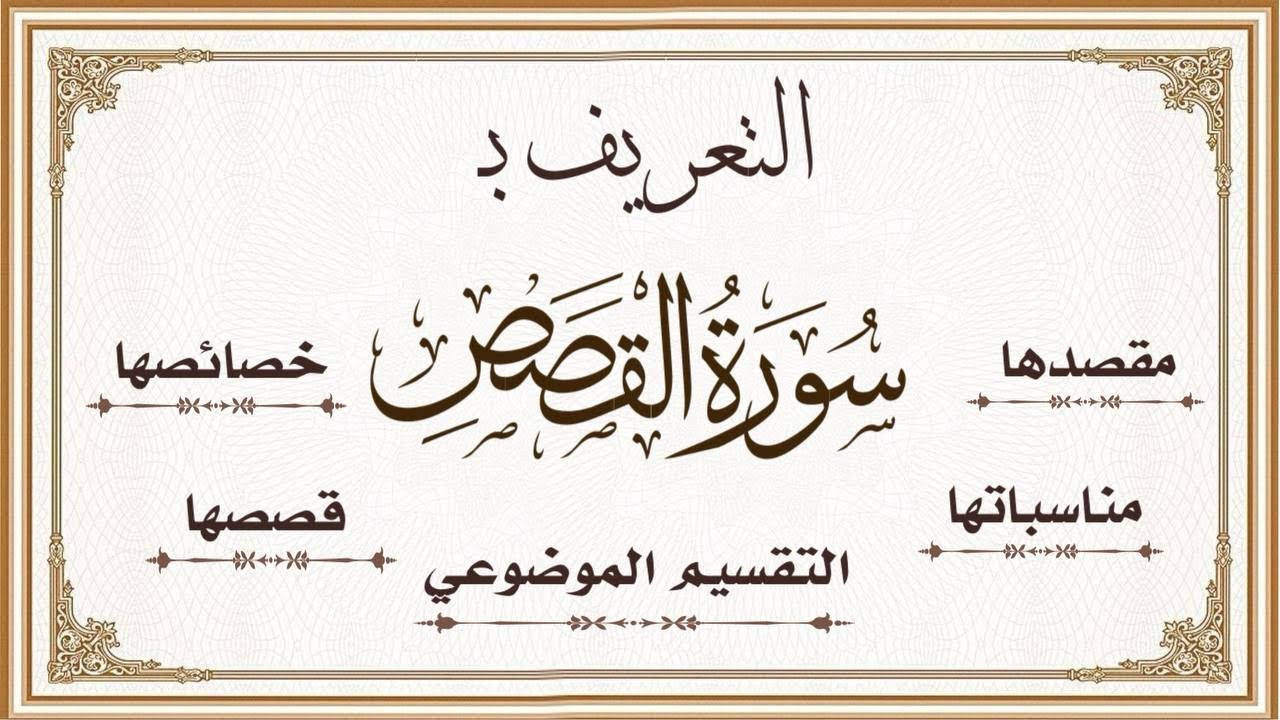 التعريف بـ
سُورَةُ القَصَصِ
مقصدها
خصائصها
مناسباتها
قصصها
التقسيم الموضوعي